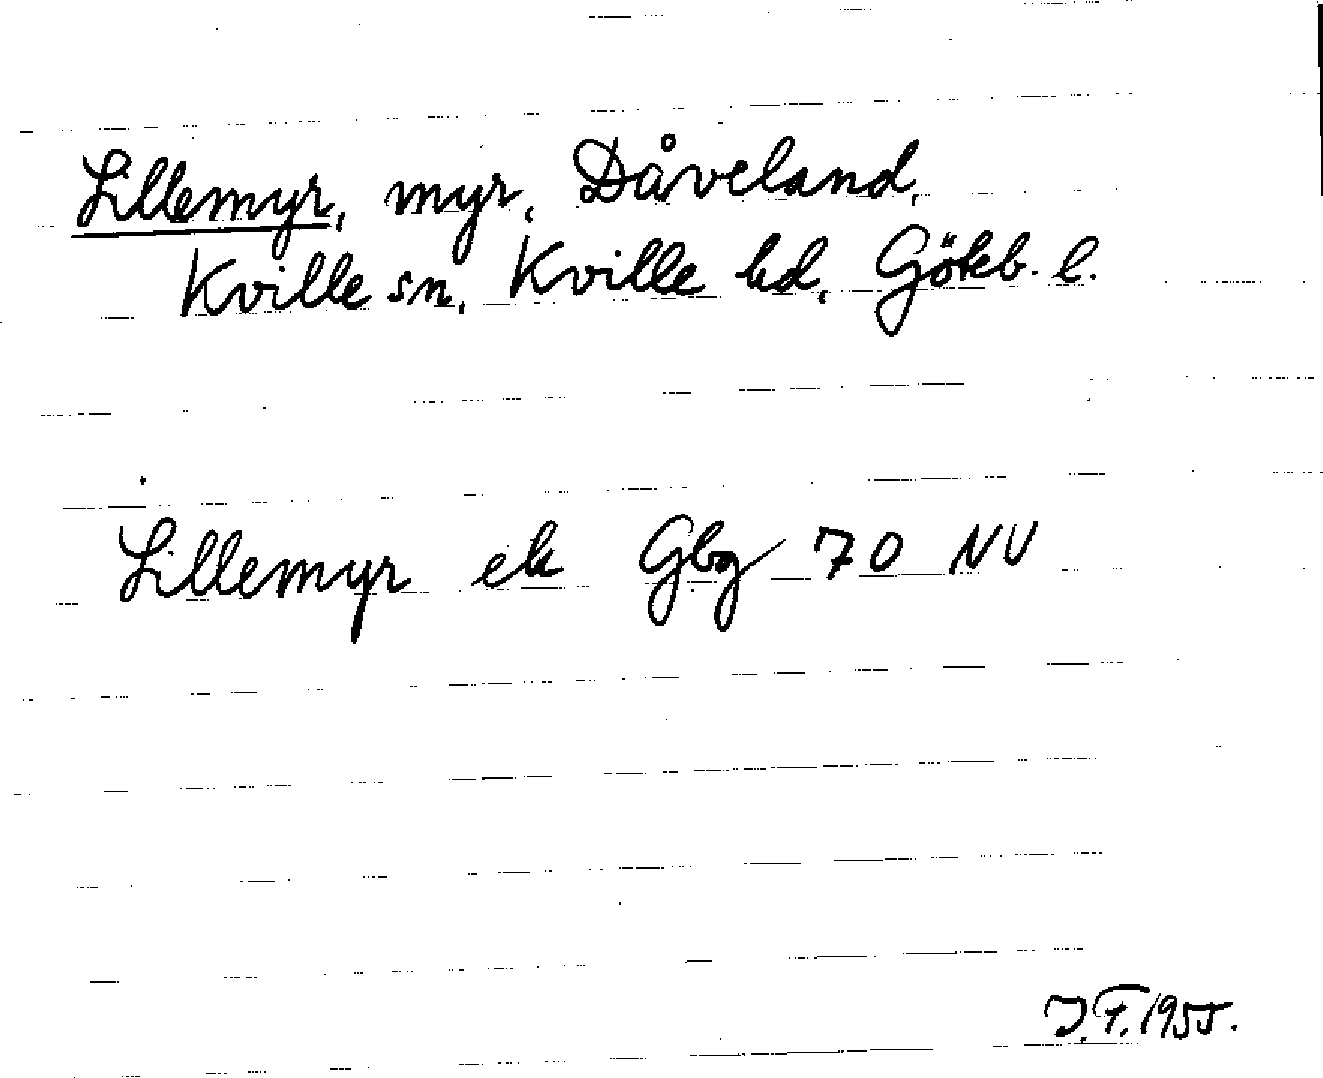 Lillemyr, myr, Dåveland,
Kville sn, Kville hd, Göteb. l.
Lillemyr ek Gbg 70 NV
J.F. 1955.